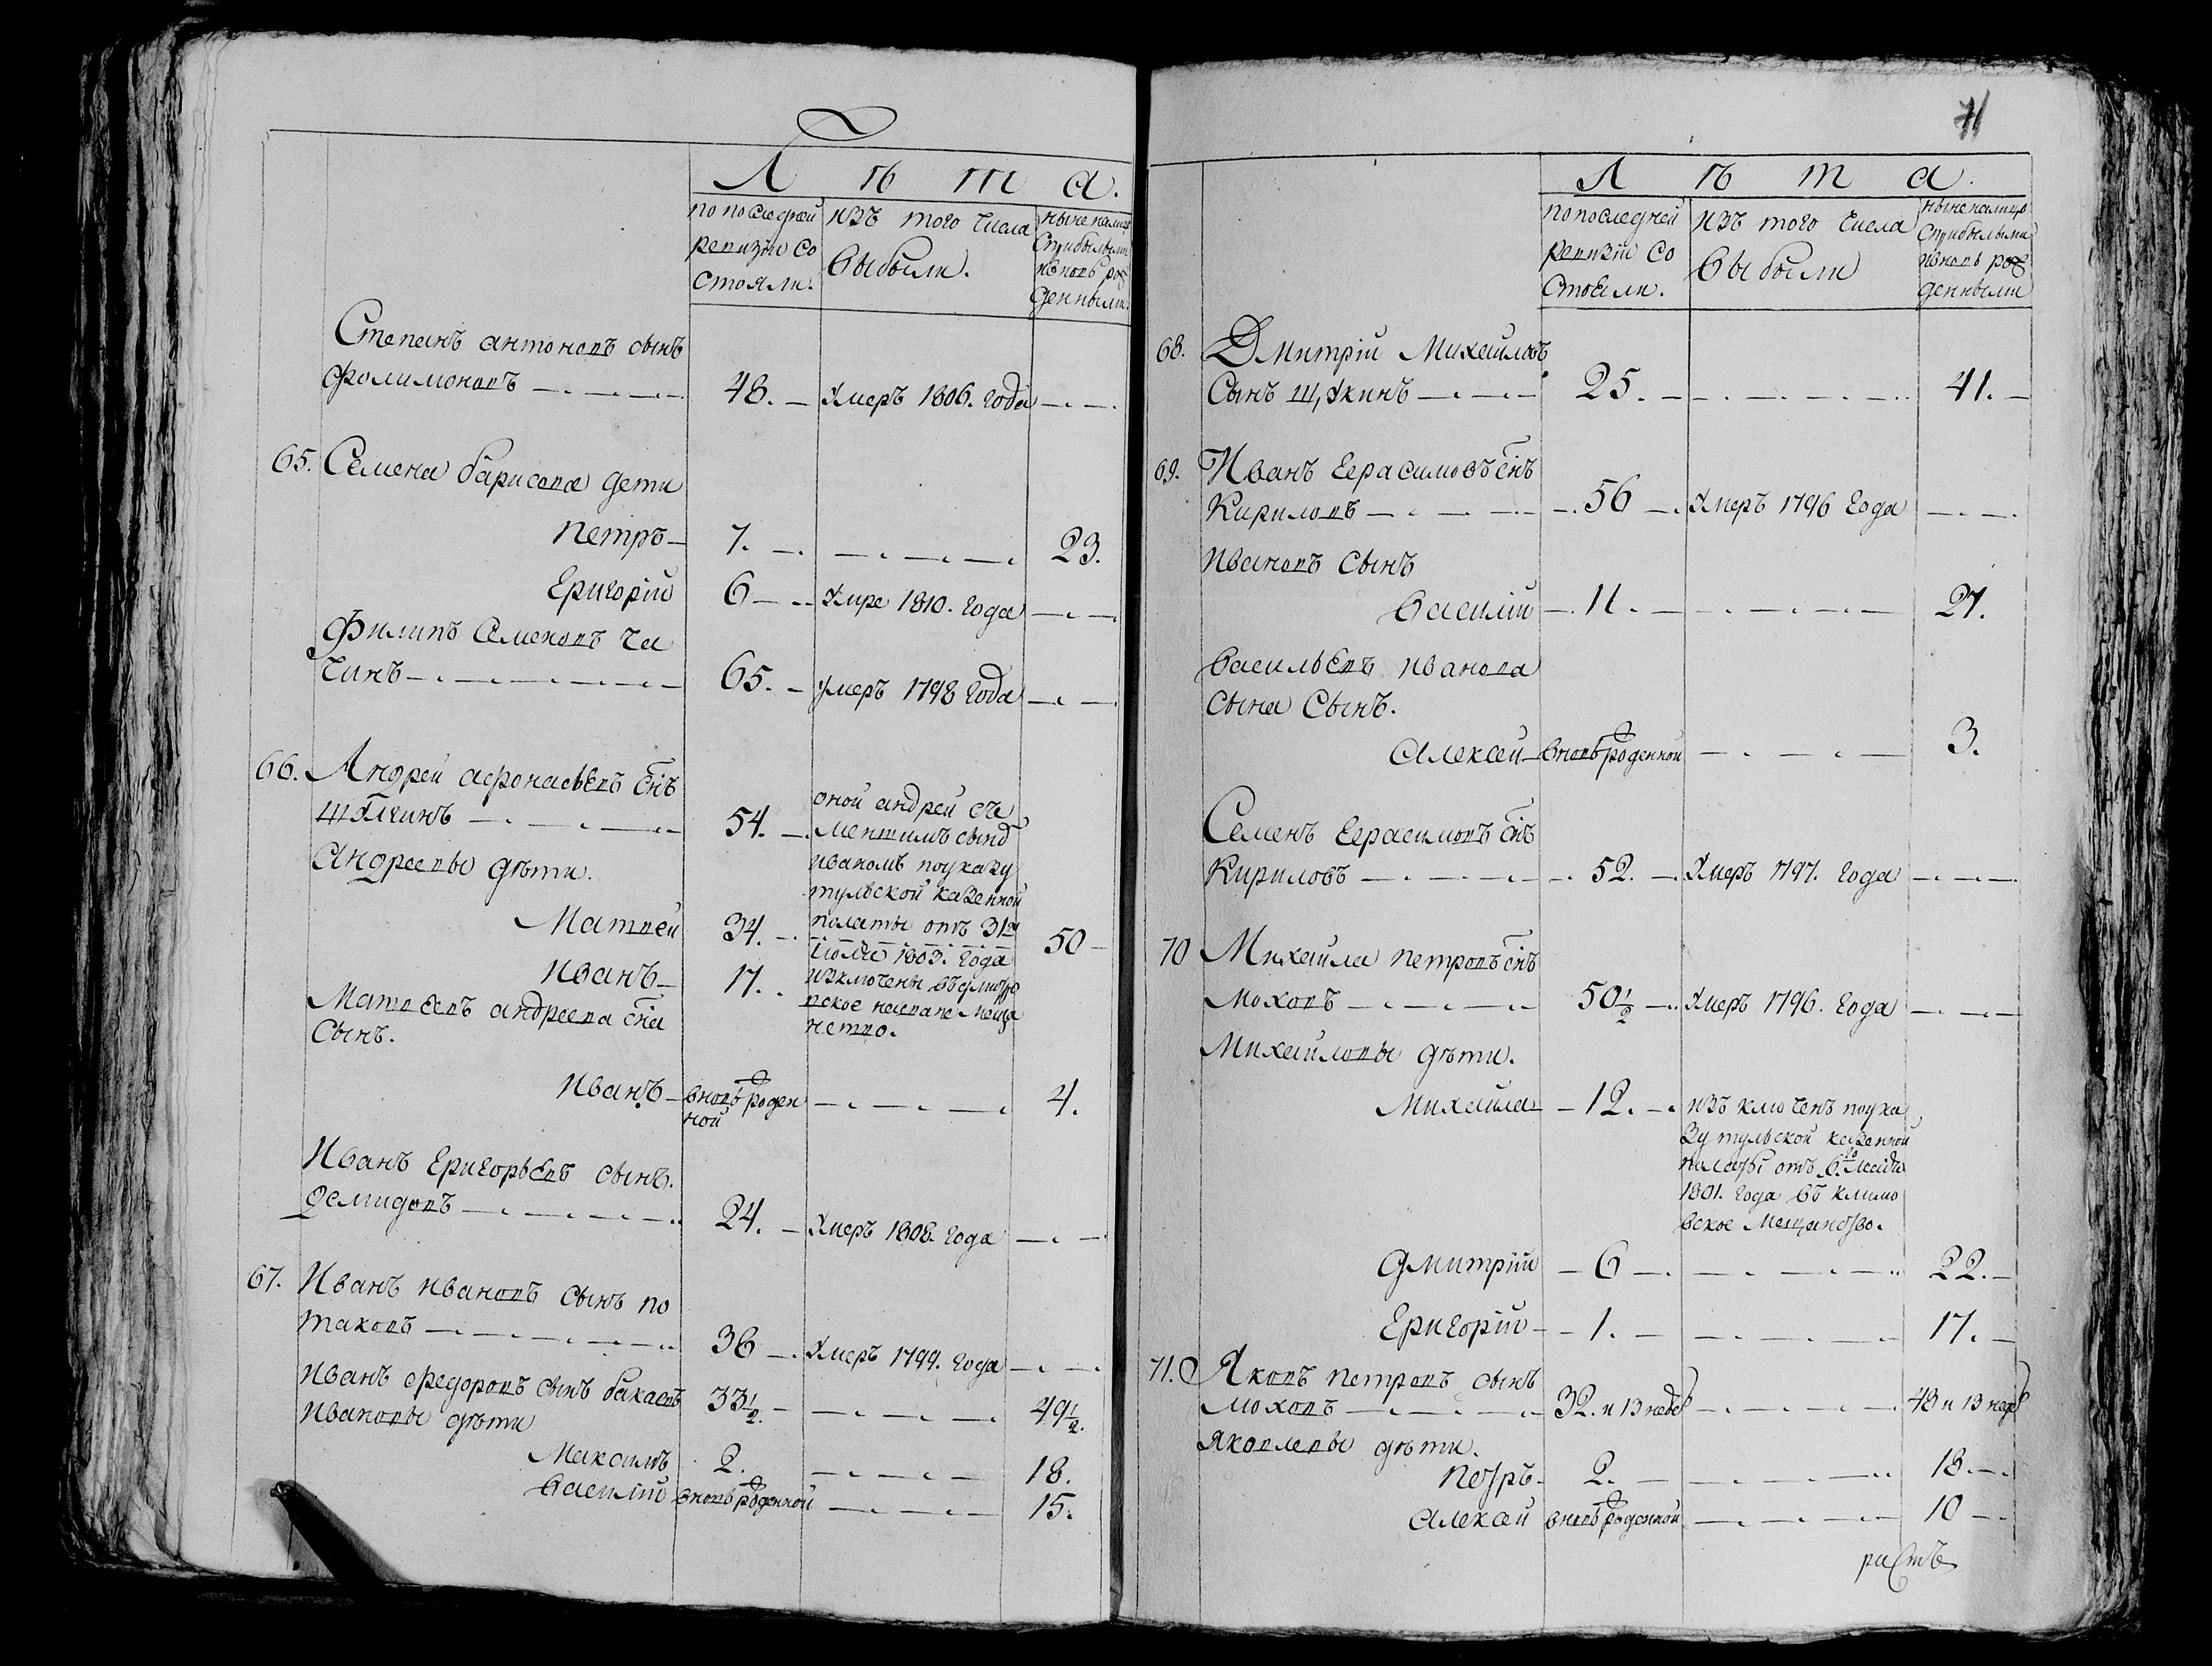 Л ѣ т а.
по последней ревизіи со стояли.
изъ того числа выбыли.
ныне налицо с прибылыми и вновь рожденными.
Степанъ антоновъ сынъ
Фолимоновъ 48. умеръ 1806. года
65. Семена барисова дети
Петръ 7. 23.
Григорій 6 умре 1810. года
Филипъ Семеновъ
чинъ 65. умеръ 1798 года
66. Андрей афонасьевъ снъ
54. оной андрей съ
меншимъ сыно
Андреевы дѣти.
иваномъ поуказу
тульской казенной
Матвей 34. палаты отъ 31го 50
Іюля 1803. года
Иванъ 17. изключены
Матвеевъ андреева сна
сынъ.
Иванъ вновь роден
ной 4.
Иванъ Григорьевъ сынъ.
Демидовъ 24. умеръ 1808. года
67. Иванъ ивановъ сынъ по
таповъ 36 умеръ 1799. года
Иванъ федоровъ сынъ 33½. 49½.
Ивановы дѣти
Максимъ 2. 18.
Василій вновь роденной 15.
71
Л ѣ т а.
по последней ревизіи со стояли.
изъ того числа выбыли
ныне налицо с прибылыми и вновь рожденными
68. Дмитрій Михайловъ
Сынъ Щукинъ 25. 41.
69. Иванъ Герасимовъ снъ
Кириловъ 56 умеръ 1796 года
Ивановъ сынъ
Василій 11. 27.
Васильевъ иванова
сына Сынъ.
Алексей вновь роденной 3.
Семенъ Герасимовъ снъ
Кириловъ 52. умеръ 1797. года
70 Михаила петровъ снъ
Моховъ 50½ умеръ 1796. года
Михайловы дѣти.
Михаила 12. изъключенъ поука
зу тульской казенной
палаты отъ 6.го маія
1801. года въ климо
вское мещанство.
Дмитрій 6 22.
Григорій 1. 17.
71. Яковъ петровъ сынъ
Моховъ 32. и 13 недѣ 48 и 13 недѣ
Яковлевы дѣти.
Петръ 2. 18.
Алексей вновь роденной 10